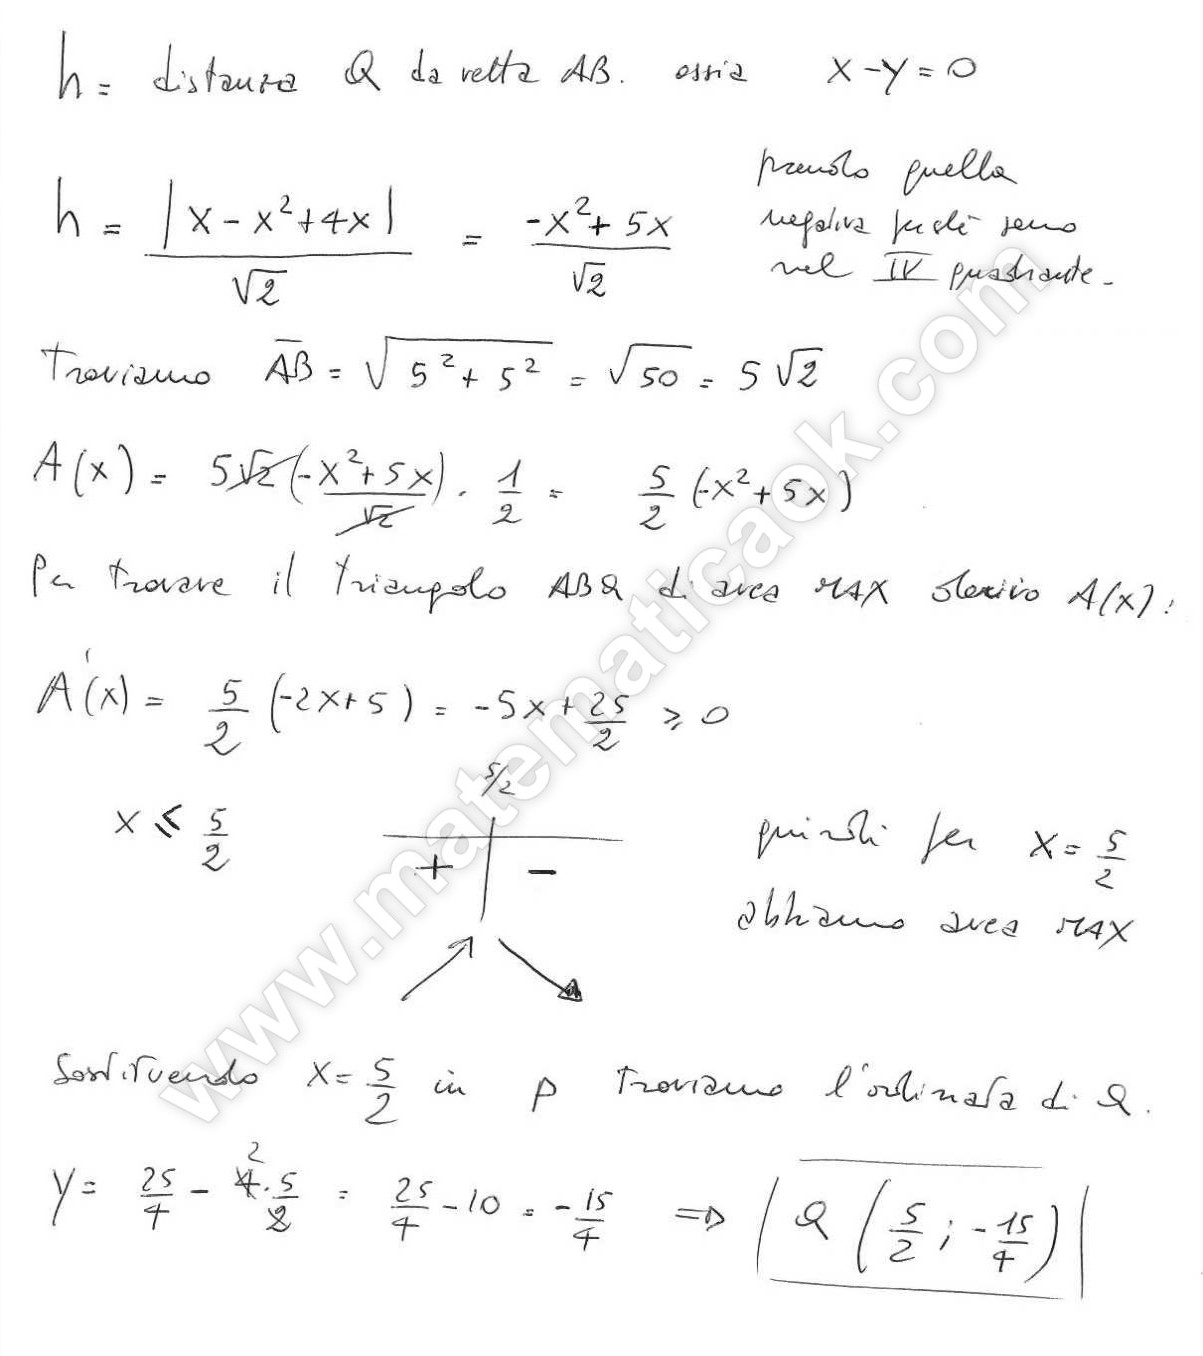 h = distanza Q da retta AB. ossia x-y=0
h = |x-x²+4x| / √2 = -x²+5x / √2 prendo quella
negativa perché semo
nel IV quadrante.
Troviamo A̅B̅ = √(5²+5²) = √50 = 5√2
A(x) = 5√2 (-x²+5x / √2) · 1/2 = 5/2 (-x²+5x)
Per trovare il triangolo ABQ di area MAX derivo A(x):
A'(x) = 5/2 (-2x+5) = -5x + 25/2 ≥ 0
5/2
x ≤ 5/2
+ -
quindi per x = 5/2
abbiamo area MAX
Sostituendo x = 5/2 in p troviamo l'ordinata di Q.
y = 25/4 - 4² · 5/2 = 25/4 - 10 = -15/4 ⇒ Q (5/2 ; -15/4)
www.matematicaok.com